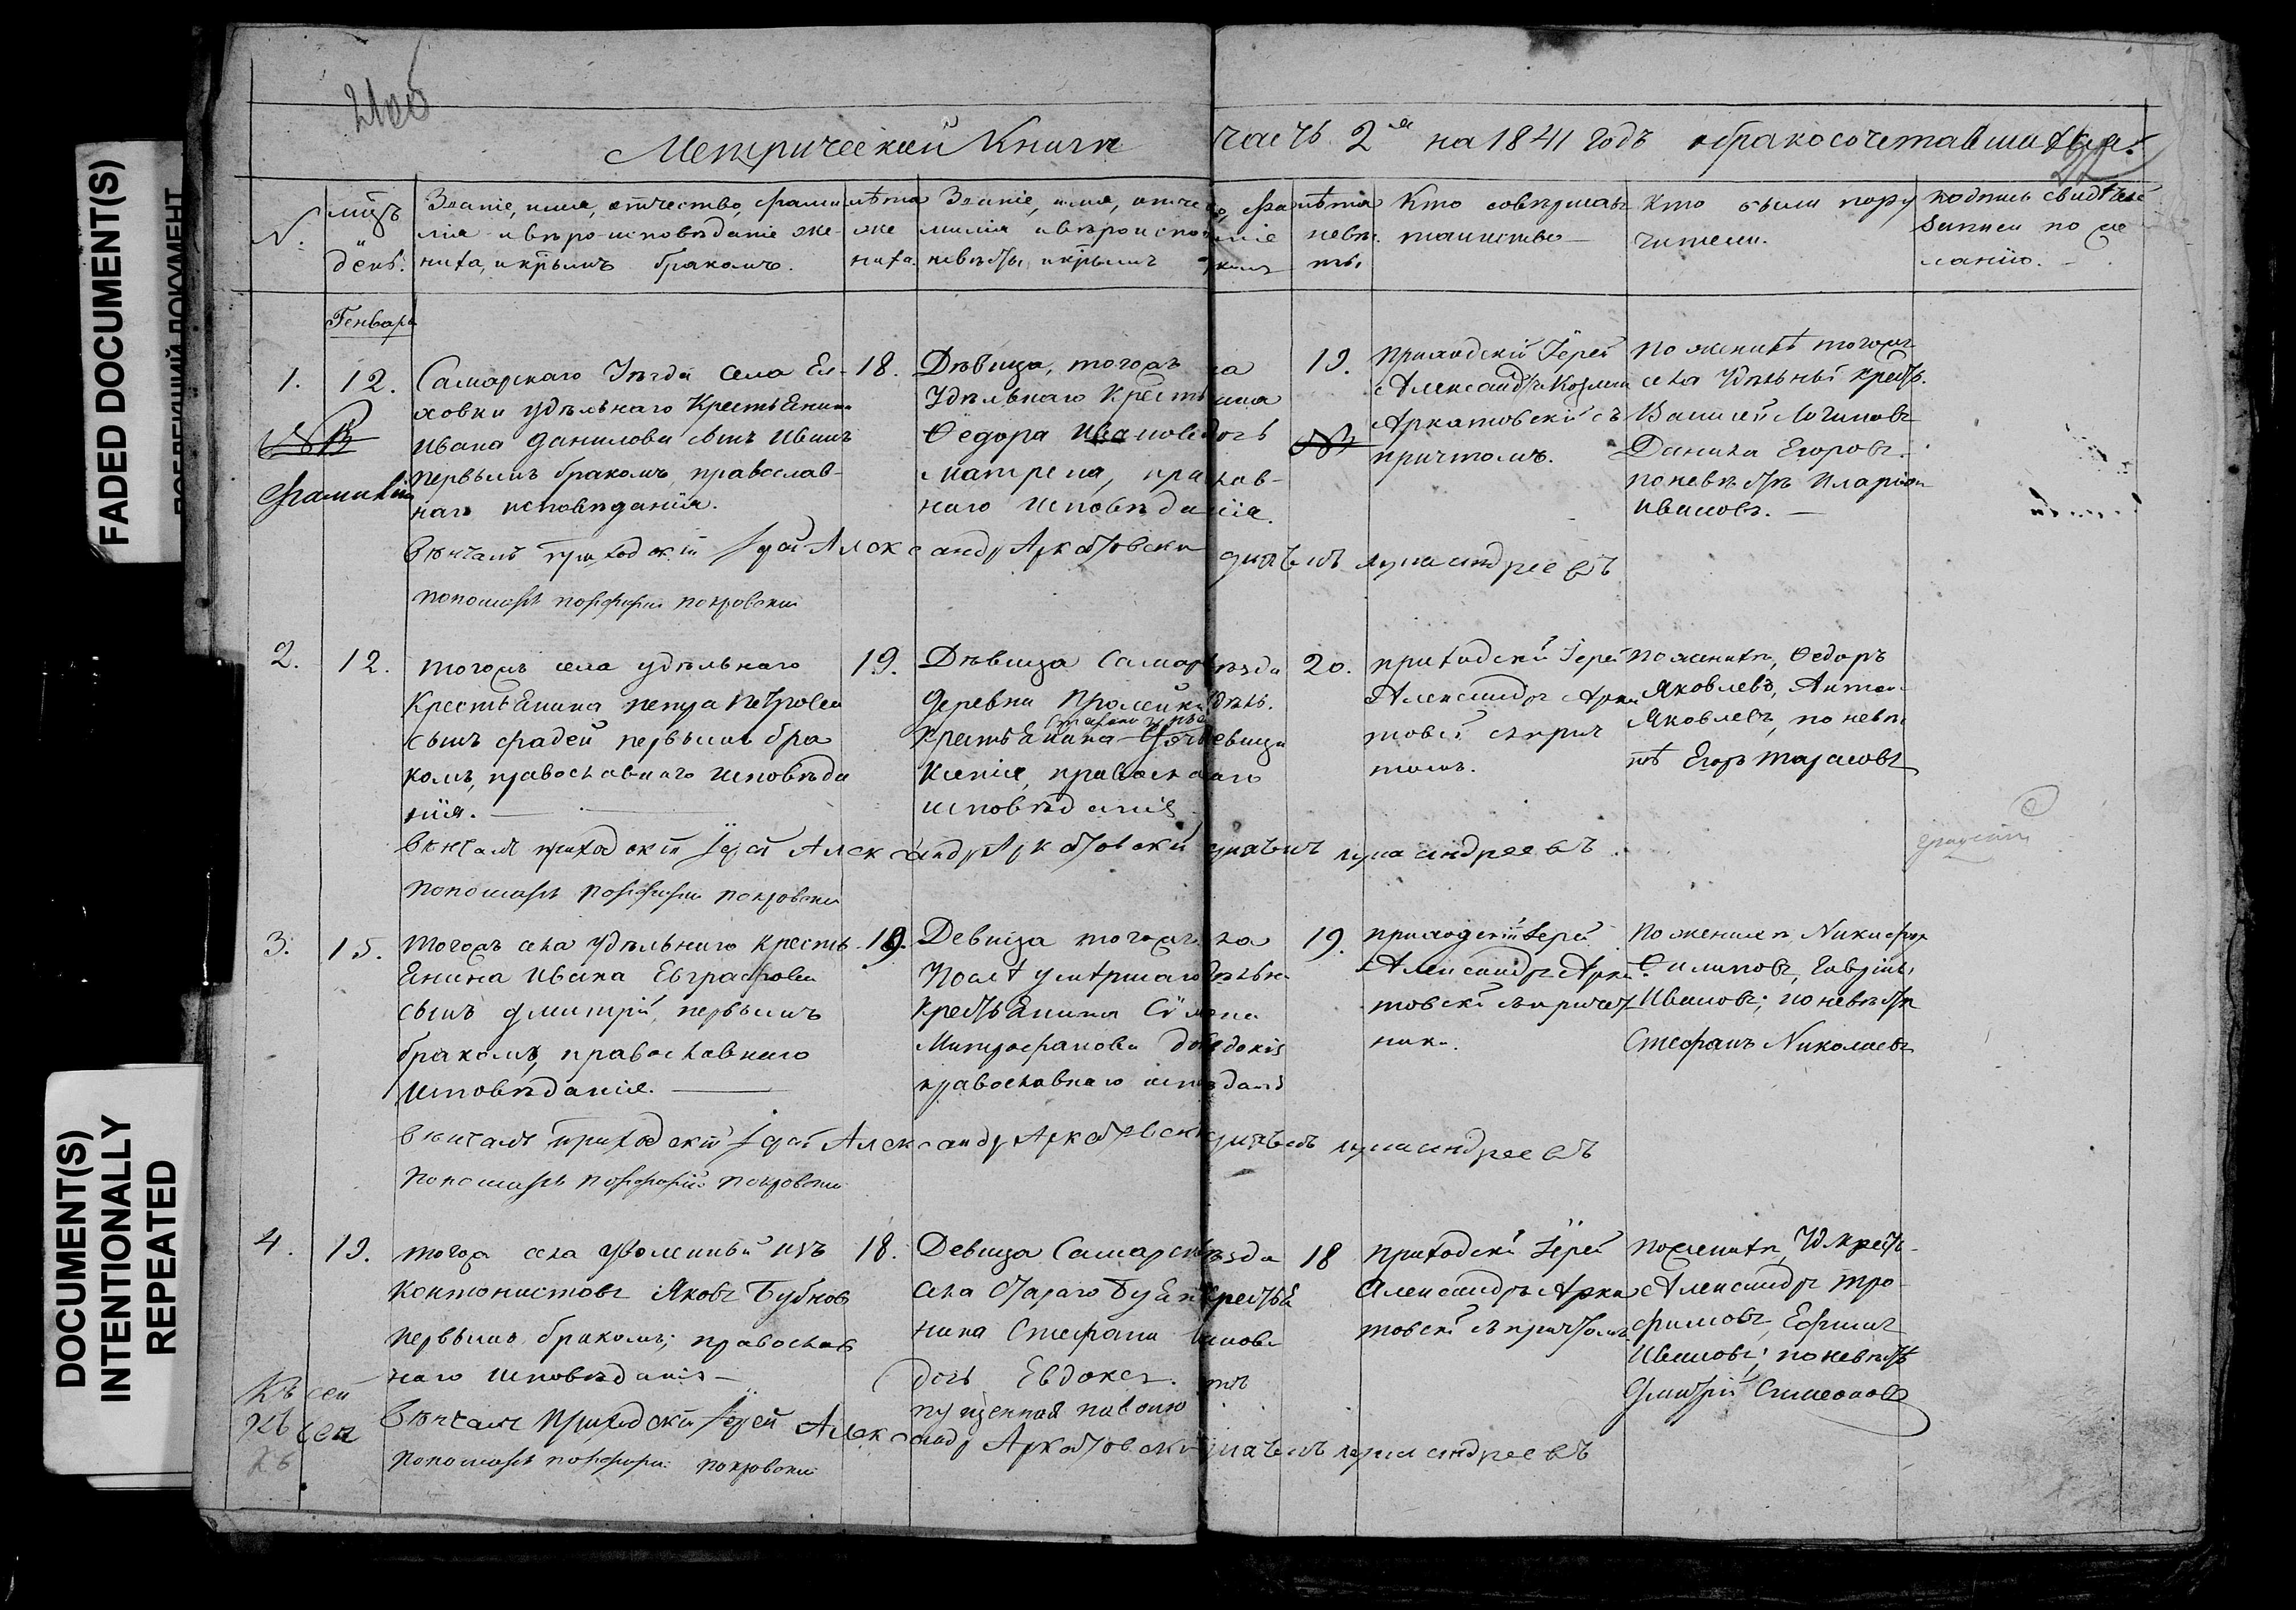 FADED DOCUMENT(S)
DOCUMENT(S)
INTENTIONALLY
REPEATED
Метрической Книги часть 2я на 1841 годъ о бракосочетавшихся.
№.
мцъ
день.
Званіе, имя, отчество, фами
лія и вѣро-исповѣданіе же-
ниха, и крымъ бракомъ.
лѣта
же
ниха.
Званіе, имя, отчество, фа
милія и вѣроисповѣданіе
невѣсты, и крымъ бракомъ
лѣта
невѣ.
сты
Кто совершалъ
таинство
Кто были пору
чители.
Генварь
1.
12.
Самарскаго Уѣзда Села Ел-
ховки удѣльнаго Крестьянина
Ивана Данилова сынъ Иванъ
первымъ бракомъ, православ-
наго исповѣданія.
18.
Дѣвица, тогожъ села
Удѣльнаго Крестьянина
Ѳедора Иванова дочь
Матрена, православ-
наго исповѣданія.
19.
Приходскій Іерей
Александръ
Аркатовскій съ
причтомъ.
По женихѣ тогожъ
села Удѣльный крест.
Василій Логиновъ
Данила Егоровъ.
по невѣстѣ Иларіонъ
Ивановъ.
Вѣнчалъ приходскій Іерей Александръ Аркатовскій діячекъ лука андреевъ
пономарь порфирій покровскій
2.
12.
тогожъ села удѣльнаго
Крестьянина Петра Петрова
сынъ Фадей первымъ бра
комъ, православнаго исповѣда
нія.
19.
Дѣвица Самар уѣзда
деревни
Крестьянина
Ксенія, православнаго
исповѣданія
20.
приходскій Іерей
Александръ Арка
товскій съ прич
томъ.
По женихѣ, Ѳедоръ
Яковлевъ, Антонъ
Яковлевъ, по невѣс
тѣ Егоръ Тарасовъ
Вѣнчалъ приходскій Іерей Александръ Аркатовскій діячекъ лука андреевъ
пономарь порфирій покровскій
3.
15.
Тогожъ села удѣльнаго кресть-
янина Ивана Евграфова
сынъ Дмитрій, первымъ
бракомъ, православнаго
исповѣданія.
19.
Девица тогожъ села
Послѣ умершаго удѣльна
Крестьянина Симіона
Митрофанова дочь Евдокія
православнаго исповѣданія
19.
приходскій Іерей
Александръ Арка
товскій съ причет
ники.
По женихѣ Никифоръ
Филиповъ, Гаврилъ
Ивановъ; по невѣстѣ
Стефанъ Николаевъ
Вѣнчалъ приходскій Іерей Александръ Аркатовскій діячекъ лука андреевъ
пономарь порфирій покровскій
4.
19.
тогож села уволенный изъ
Кантонистовъ Яковъ Бубновъ
первымъ бракомъ; православ
наго исповѣданія
18.
Девица Самарск уѣзда
села Стараго Буяна крестья
нина Стефана
дочь Евдокея. от
пущенная на волю
18
приходскій Іерей
Александръ Арка
товскій съ причтомъ.
По женихѣ, Уд. крест-
Александръ Тро
фимовъ, Ефимъ
Ивановъ; по невѣстѣ
Дмитрій Симеоновъ
Вѣнчалъ приходскій Іерей Александръ Аркатовскій діячекъ лука андреевъ
пономарь порфирій покровскій